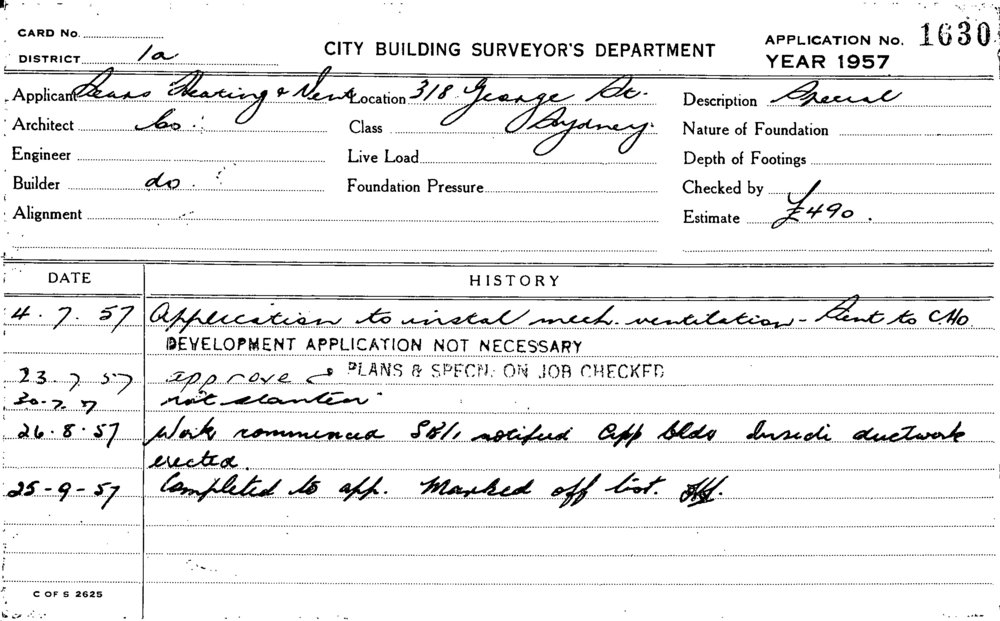 CARD No.
DISTRICT 1a
CITY BUILDING SURVEYOR'S DEPARTMENT
APPLICATION No. 1630
YEAR 1957
Applicant Heating & Vent Location 318 George St. Description Special
Architect Co. Class Sydney. Nature of Foundation
Engineer Live Load Depth of Footings
Builder do. Foundation Pressure Checked by
Alignment Estimate £490.
DATE HISTORY
4.7.57 Application to instal mech. ventilation - Sent to C.H.O.
DEVELOPMENT APPLICATION NOT NECESSARY
23.7.57 approved PLANS & SPECN. ON JOB CHECKED
30-7.57 not started
26.8.57 Work commenced notified app bldr Inside ductwork
erected.
25-9-57 Completed to app. Marked off list.
C OF S 2625